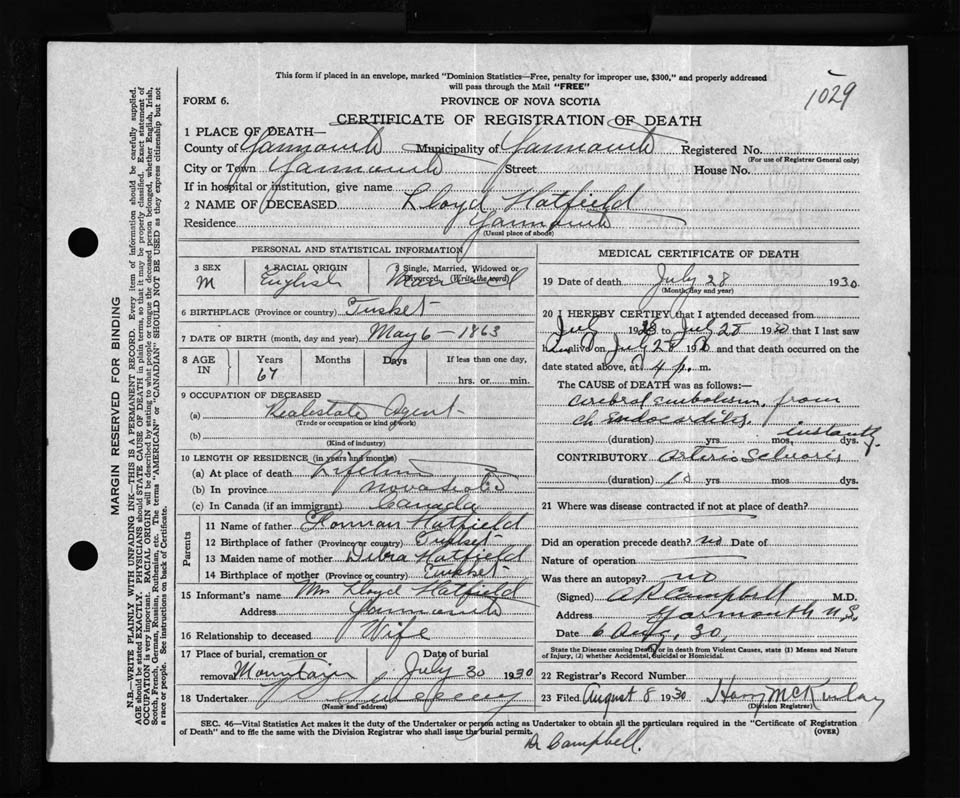 This form if placed in an envelope, marked "Dominion Statistics—Free, penalty for improper use, $300," and properly addressed
will pass through the Mail "FREE"
1029
FORM 6.
PROVINCE OF NOVA SCOTIA
CERTIFICATE OF REGISTRATION OF DEATH
1 PLACE OF DEATH—
County of Yarmouth Municipality of Yarmouth Registered No.
(For use of Registrar General only)
City or Town Yarmouth Street House No.
If in hospital or institution, give name
2 NAME OF DECEASED Lloyd Hatfield
Residence Yarmouth
(Usual place of abode)
PERSONAL AND STATISTICAL INFORMATION
3 SEX M
4 RACIAL ORIGIN English
5 Single, Married, Widowed or Divorced (Write the word) Married
6 BIRTHPLACE (Province or country) Tusket
7 DATE OF BIRTH (month, day and year) May 6 - 1863
8 AGE IN Years 67 Months Days If less than one day, hrs. or min.
9 OCCUPATION OF DECEASED
(a) Real estate Agent
(Trade or occupation or kind of work)
(b)
(Kind of industry)
10 LENGTH OF RESIDENCE (in years and months)
(a) At place of death Lifetime
(b) In province Nova Scotia
(c) In Canada (if an immigrant) Canada
Parents
11 Name of father Forman Hatfield
12 Birthplace of father (Province or country) Tusket
13 Maiden name of mother Hatfield
14 Birthplace of mother (Province or country) Tusket
15 Informant's name Mrs Lloyd Hatfield
Address Yarmouth
16 Relationship to deceased Wife
17 Place of burial, cremation or removal Mountain Date of burial July 30 1930
18 Undertaker Sweeney
(Name and address)
MEDICAL CERTIFICATE OF DEATH
19 Date of death July 28 1930
(Month, day and year)
20 I HEREBY CERTIFY that I attended deceased from
July 28 to July 28 1930 that I last saw
h alive on July 28 and that death occurred on the
date stated above, at 4 p. m.
The CAUSE OF DEATH was as follows:—
Cerebral embolism, from
ch Endocarditis, instantly
(duration) yrs. mos. dys.
CONTRIBUTORY Arterio Sclerosis
(duration) 10
21 Where was disease contracted if not at place of death?
Did an operation precede death? no Date of
Nature of operation
Was there an autopsy? no
(Signed) Campbell M.D.
Address Yarmouth N.S.
Date 6 Aug, 30,
State the Disease causing Death, or in death from Violent Causes, state (1) Means and Nature
of Injury, (2) whether Accidental, Suicidal or Homicidal.
22 Registrar's Record Number
23 Filed August 8 1930 Harry McKinlay
(Division Registrar)
SEC. 46—Vital Statistics Act makes it the duty of the Undertaker or person acting as Undertaker to obtain all the particulars required in the "Certificate of Registration
of Death" and to file the same with the Division Registrar who shall issue the burial permit. (OVER)
Dr Campbell.
MARGIN RESERVED FOR BINDING
N.B.—WRITE PLAINLY WITH UNFADING INK—THIS IS A PERMANENT RECORD. Every item of information should be carefully supplied.
AGE should be stated EXACTLY. PHYSICIANS should STATE CAUSE OF DEATH in plain terms, so that it may be properly classified. Exact statement of
OCCUPATION is very important. RACIAL ORIGIN will be described by stating to what people or tongue the deceased person belonged, whether English, Irish,
Scotch, French, German, Russian, Ruthenian, etc. The terms "AMERICAN" or "CANADIAN" SHOULD NOT BE USED as they express citizenship but not
a race or people. See instructions on back of Certificate.